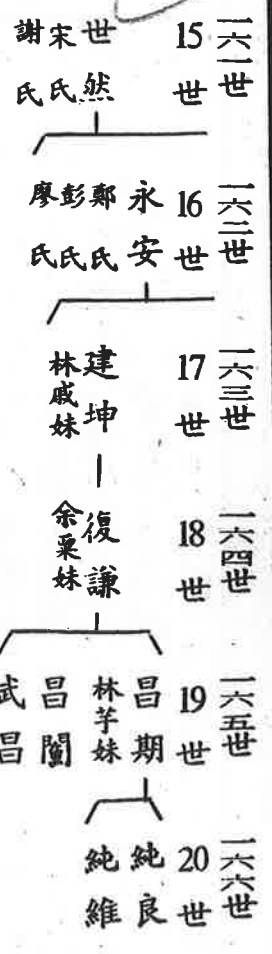 一六一世
15世
世然
宋氏
謝氏
一六二世
16世
永安
鄭氏
彭氏
廖氏
一六三世
17世
建坤
林戚妹
一六四世
18世
復謙
余粟妹
一六五世
19世
昌期
林芋妹
昌闈
武昌
一六六世
20世
純良
純維